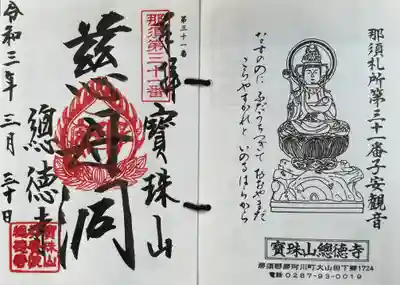 那須札所第三十一番子安観音
なすのに ふだうちつぎて おおやまだ
こらやすかれと いのるはゝから
寶珠山總徳寺
那須郡那珂川町大山田下郷1724
電話 0287-93-0019
第三十一番
那須第三十一番
奉拝
寶珠山
慈母閣
總徳寺
令和三年 三月 三十日